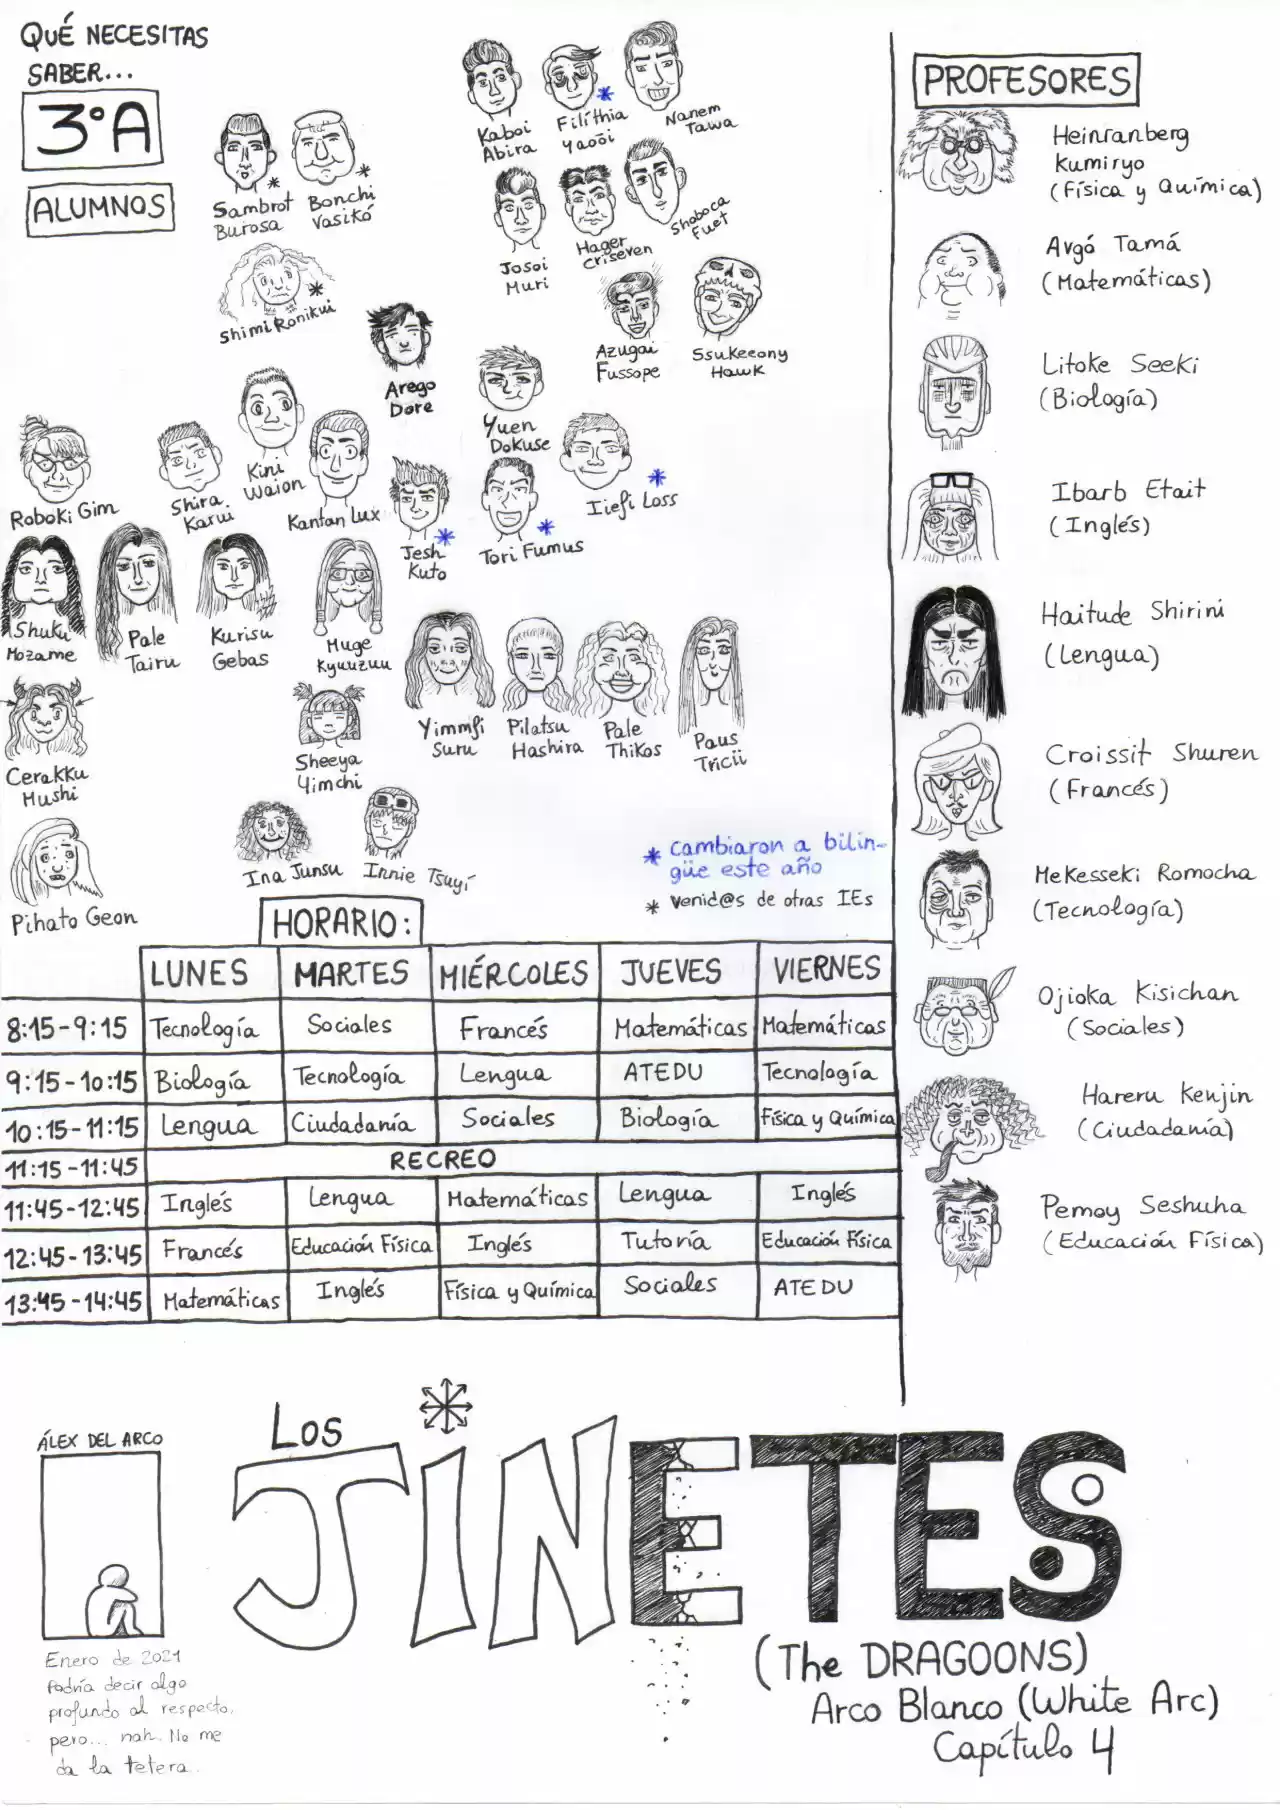 QUÉ NECESITAS
SABER...
3ºA
ALUMNOS
Kaboi
Abira
Filíthia
Yaoōi
*
Nanem
Tawa
Sambrot
Burosa
*
Bonchi
Vasikó
*
Josoi
Muri
Hager
Criseven
Shoboca
Fuet
Shimi Ronikui
*
Arego
Dore
Azugai
Fussope
Ssukeeony
Hawk
Yuen
Dokuse
Roboki Gim
Shira
Karui
Kini
Waion
Kantan Lux
Jesh
Kuto
*
Tori Fumus
*
Iiefi Loss
*
Shuku
Mozame
Pale
Tairu
Kurisu
Gebas
Muge
Kyuuzuu
Yimmfi
Suru
Pilatsu
Hashira
Pale
Thikos
Paus
Tricii
Cerakku
Mushi
Sheeya
Yimchi
Pihato Geon
Ina Junsu
Innie Tsuyi
* cambiaron a bilin-
güe este año
* venid@s de otras IEs
PROFESORES
Heinranberg
Kumiryo
(Física y Química)
Avgó Tamá
(Matemáticas)
Litoke Seeki
(Biología)
Ibarb Etait
(Inglés)
Haitude Shirini
(Lengua)
Croissit Shuren
(Francés)
Mekesseki Romocha
(Tecnología)
Ojioka Kisichan
(Sociales)
Hareru Kenjin
(Ciudadanía)
Pemoy Seshuha
(Educación Física)
HORARIO:
LUNES MARTES MIÉRCOLES JUEVES VIERNES
8:15-9:15 Tecnología Sociales Francés Matemáticas Matemáticas
9:15-10:15 Biología Tecnología Lengua ATEDU Tecnología
10:15-11:15 Lengua Ciudadanía Sociales Biología Física y Química
11:15-11:45 RECREO
11:45-12:45 Inglés Lengua Matemáticas Lengua Inglés
12:45-13:45 Francés Educación Física Inglés Tutoría Educación Física
13:45-14:45 Matemáticas Inglés Física y Química Sociales ATEDU
ÁLEX DEL ARCO
Enero de 2021
Podría decir algo
profundo al respecto,
pero... nah. No me
da la tetera.
LOS
JINETES
(The DRAGOONS)
Arco Blanco (White Arc)
Capítulo 4